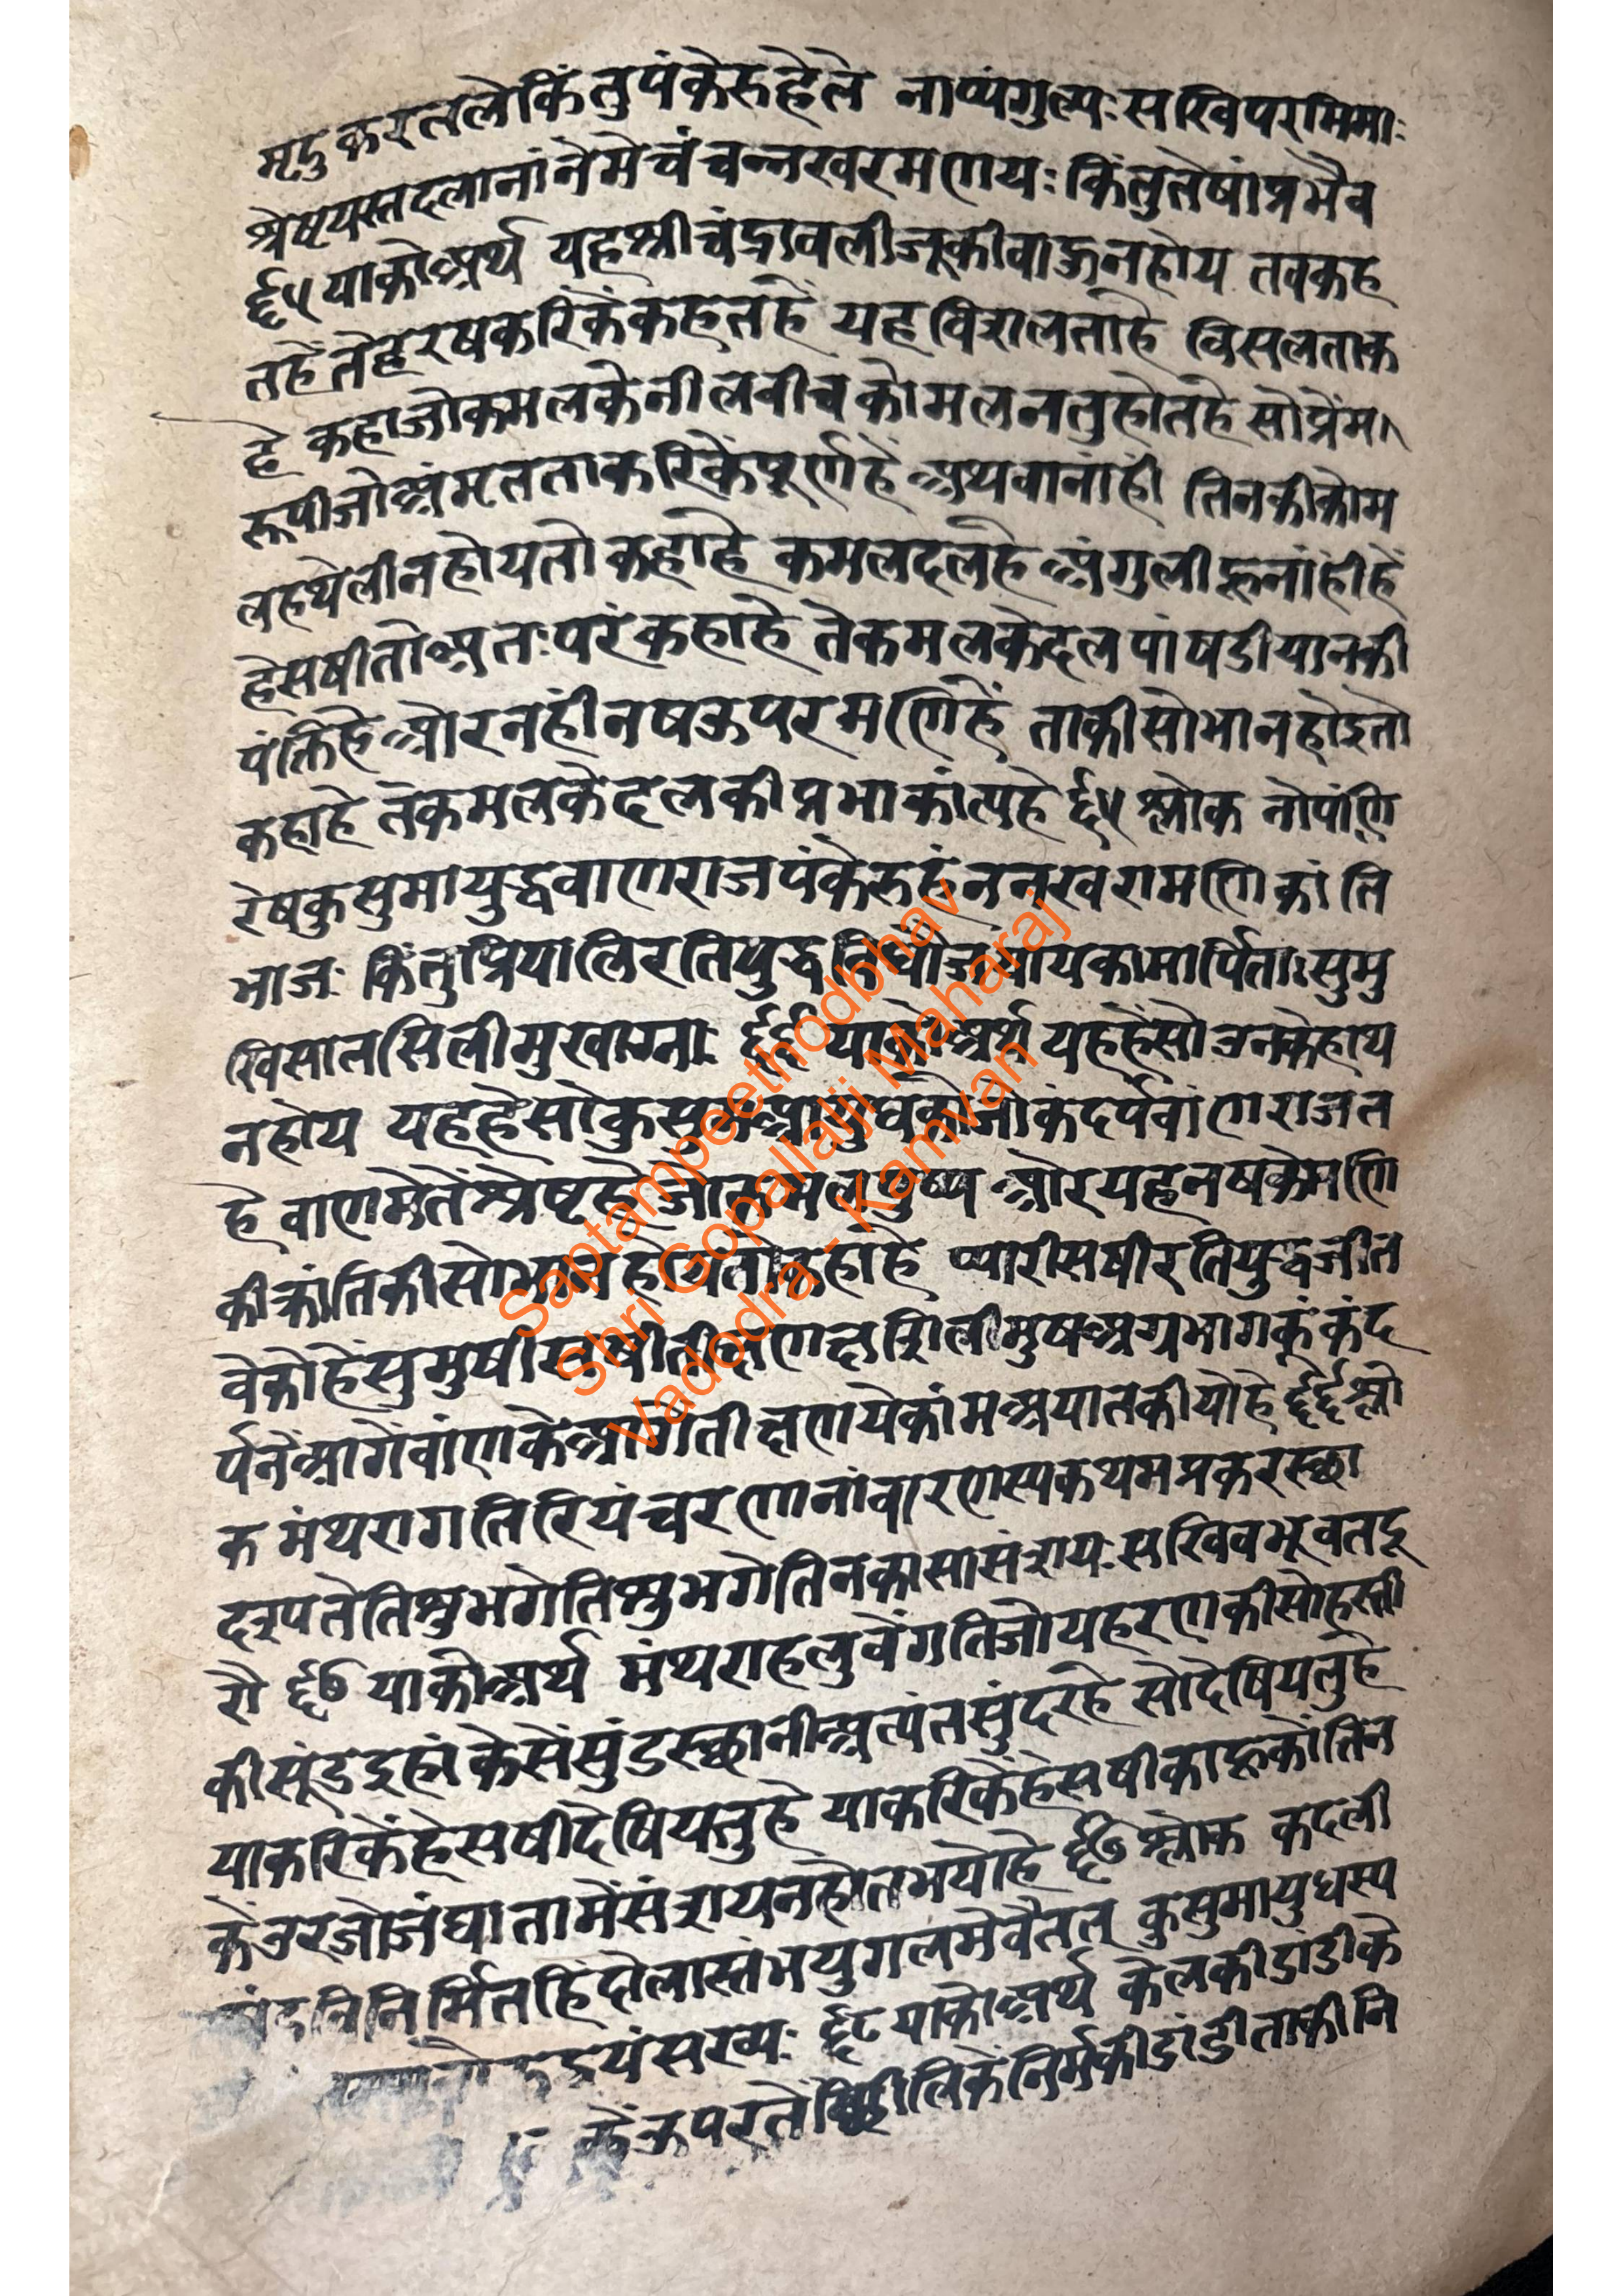 मृदुकरतलेकिंतुपंकेरुहेले नाप्यंगुल्यः सखिपरमिमाः
श्रेष्टयस्तदलानांनेमेचंचन्नखरमणयः किंतुतेषांप्रभैव
६५ याकोअर्थ यहश्रीचंद्रावलीजूकीवाऊनहोय तवकह
तहेंतेहरषकरिकेंकहतहें यहविशलताहै विसलताक
हे कहाजोकमलकेनीलवीचकोमलनलुहोतहे सोप्रेम
रूपीजोअंमृतताकरिकेंपूर्णहे अथवानांहीं तिनकीकोम
लहथेलीनहोयतोकहाहे कमलदलहे अंगुलीहूनांहींहें
हेसषीतोअतःपरंकहाहे तेकमलकेदलपांषडीयानकी
पंक्तिहे औरनहींनषऊपरमणिहें ताकीसोभानहोइतो
कहाहे तेकमलकेदलकीप्रभाकांत्यहे ६५ श्लोक नोपांणि
रेषकुसुमायुद्धवाणराजपंकेरुहंननखरामणिकांति
भाजः किंतुप्रियालिरतियुद्धविधौजयायकामार्पिताःसुमु
खिसातसिलीमुखाग्नाः ६६ याकोअर्थ यहहेंसोउनकेहाथ
नहोय यहहेंसोकुसुमआयुधकोजोकंदर्पवांणराजत
हे वाणमेतेंश्रेष्टहेजोकमलपुष्प औरयहनषकेमणि
कीक्रांतिकीसोभानहोयतोकहाहे प्यारीसषीरतियुद्धजीत
वेकोहेंसुमुषीसुषीतीक्षणशिलीमुषअग्रभागकूंकंद
र्पनेंआगेंवांणकेआगेंतीक्षणायेकांमअयातकीयोहे ६६ श्लो
क मंथरागतिरियंचरणानांवारणस्यकथमप्रकरस्छा
दृश्पतेतिश्रुभगेतिश्रुभगेतिनकासासंशयःसखिवभूवतदू
रौ ६७ याकोअर्थ मंथराहलुवेंगतिजोयहरणकीसोहस्ती
कीसूंडइहांकेसेंसुंडस्छानीअत्यंतसुंदरहे सोदेषियतुहे
याकरिकेंहेसषीदेषियतुहे याकरिकेंहेसषीकाहूकोंतिन
केउरजोजंघातामेंसंशयनहोतभयोहे ६७ श्लोक कदली
निनिर्मितहिंदोलास्तंभयुगलमेवैतत् कुसुमायुधस्य
द्वयंसख्यः ६८ याकोअर्थ केलकीडांडीके
केंऊपरतेंछीलिकेंनिर्मकीडांडीताकीनि